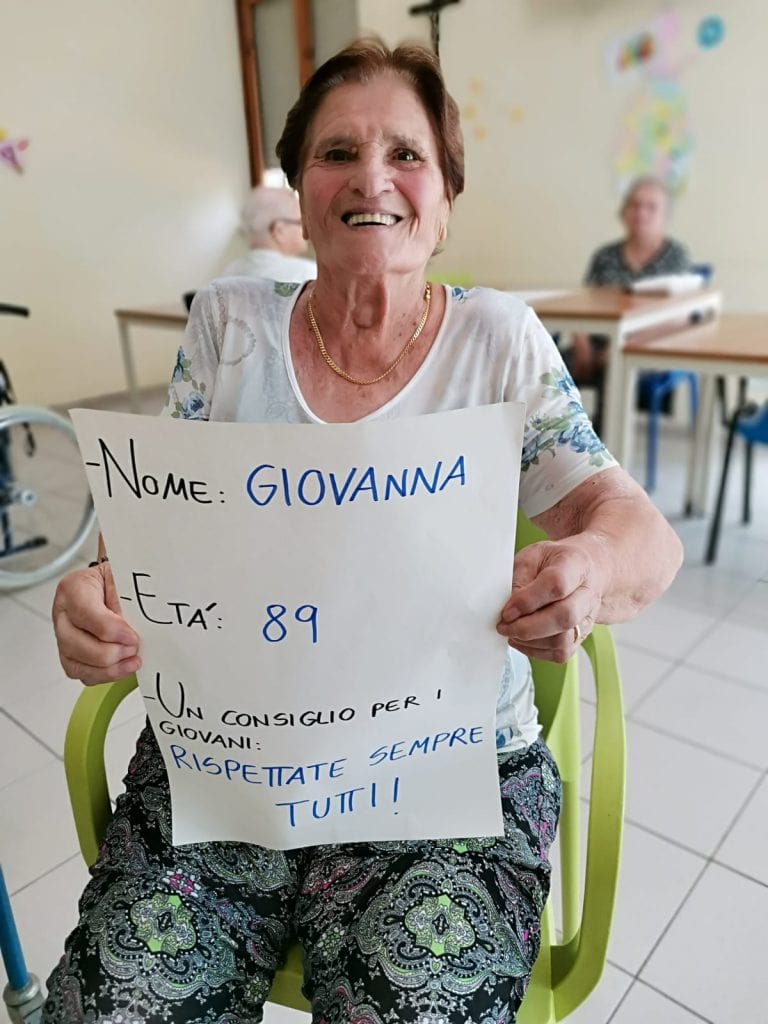 -NOME: GIOVANNA
-ETÁ: 89
-UN CONSIGLIO PER I
GIOVANI:
RISPETTATE SEMPRE
TUTTI!